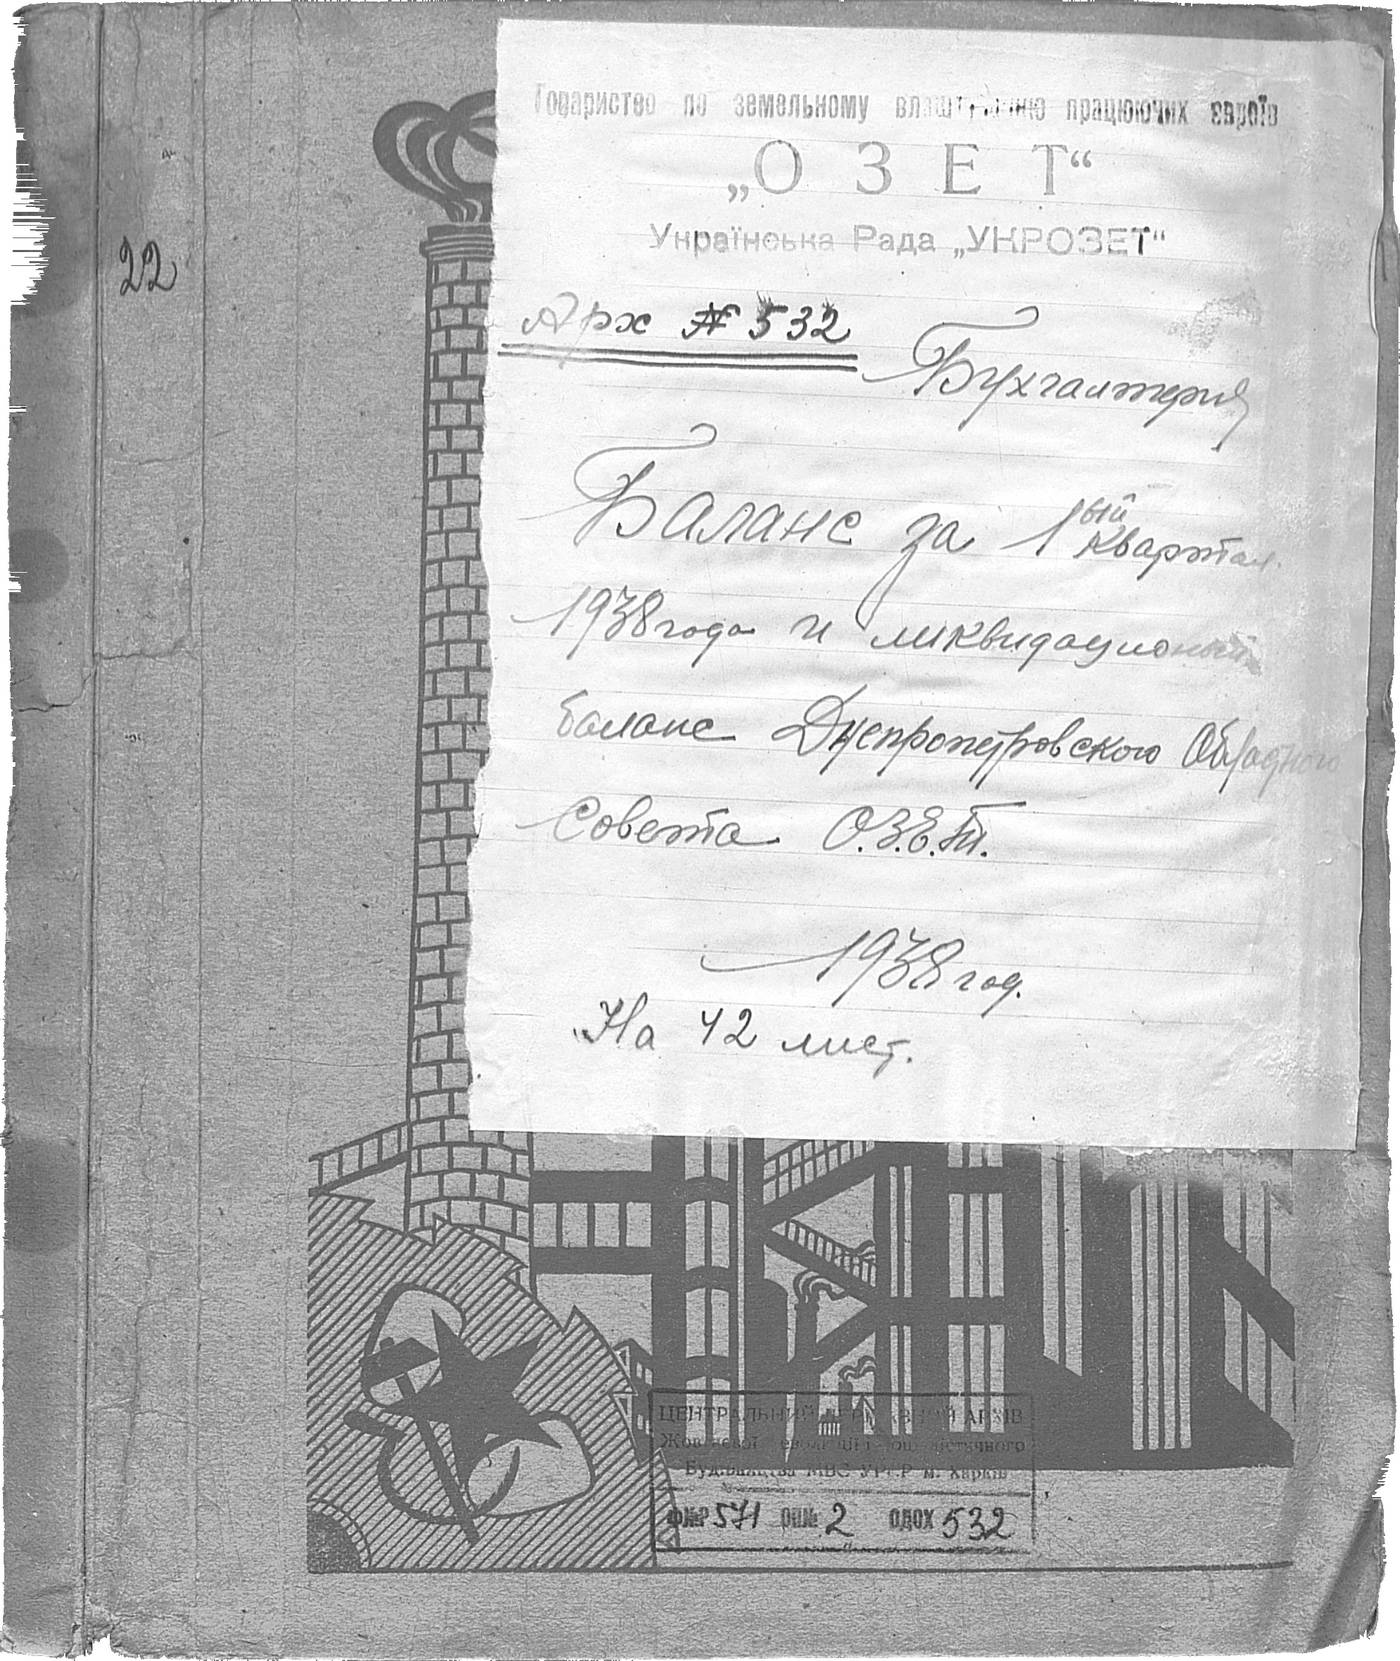 Товариство по земельному влаштуванню працюючих євреїв
„ОЗЕТ“
Українська Рада „УКРОЗЕТ“
22
Арх № 532
Бухгалтерия
Баланс за 1ый квартал
1938 года и ликвидационый
баланс Днепропетровского Облсдного
Совета О.З.Е.Т.
1938 год.
На 42 лист.
ЦЕНТРАЛЬНИЙ ДЕРЖАВНИЙ АРХІВ
Жовтневої революції і соціалістичного
Будівництва МВС УРСР м. Харків
Ф№Р 571 ОП№ 2 ОДОХ 532